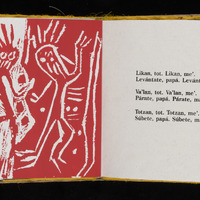 Likan, tot. Likan, me'.
Levántate, papá. Levánt
Va'lan, tot. Va'lan, me'.
Párate, papá. Párate, ma
Totzan, tot. Totzan, me'.
Súbete, papá. Súbete, m